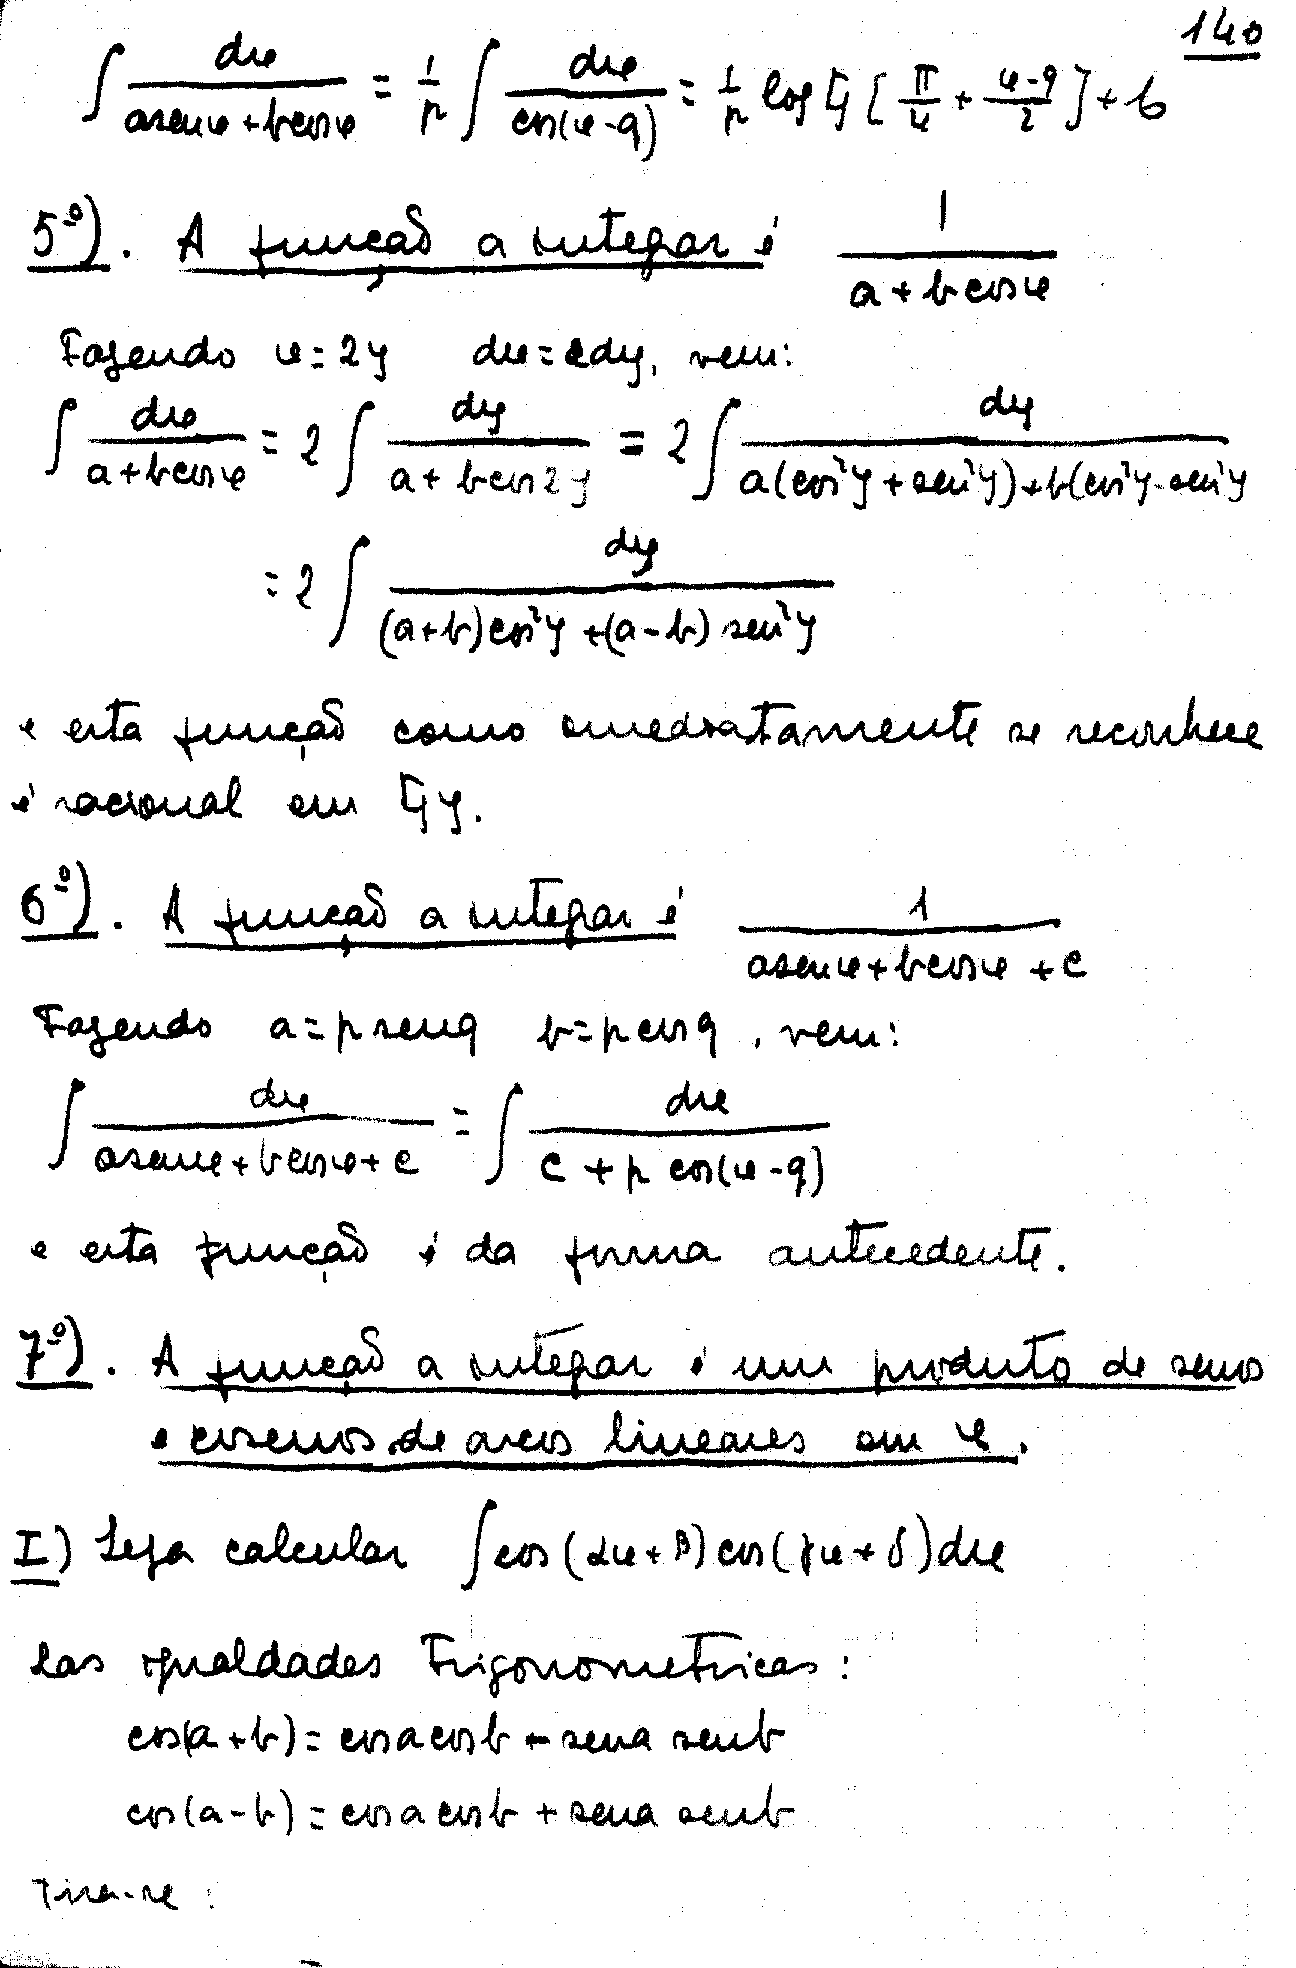 140
∫ du/(a sen u + b cos u) = 1/p ∫ du/cos(u-q) = 1/p log tg [π/4 + (u-q)/2] + b
5º). A função a integrar é 1/(a + b cos u)
Fazendo u = 2y du = 2dy, vem:
∫ du/(a + b cos u) = 2 ∫ dy/(a + b cos 2y) = 2 ∫ dy/(a(cos²y + sen²y) + b(cos²y - sen²y
= 2 ∫ dy/((a+b)cos²y + (a-b) sen²y)
e esta função como imediatamente se reconhece
é racional em tg y.
6º). A função a integar é 1/(a sen u + b cos u + c)
Fazendo a = p sen q b = p cos q, vem:
∫ du/(a sen u + b cos u + c) = ∫ du/(c + p cos(u-q))
e esta função é da forma antecedente.
7º). A função a integar é um produto de senos
e cosenos de arcos lineares em u.
I) Seja calcular ∫ cos(αu + β) cos(γu + δ) du
Das igualdades trigonometricas:
cos(a + b) = cos a cos b - sen a sen b
cos(a - b) = cos a cos b + sen a sen b
Tira-se: